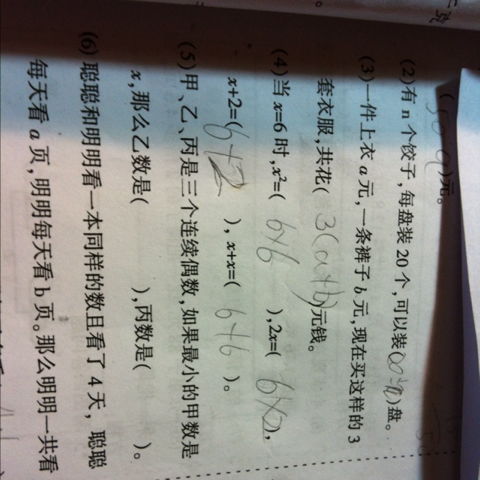 )元。
(2)有 n 个饺子,每盘装 20 个,可以装( )盘。
(3)一件上衣 a 元,一条裤子 b 元,现在买这样的 3
套衣服,共花( 3(a+b) )元钱。
(4)当 x=6 时,x²=( 6×6 ),2x=( 6×2 ),
x+2=( 6+2 ), x+x=( 6+6 )。
(5)甲、乙、丙是三个连续偶数,如果最小的甲数是
x,那么乙数是( ),丙数是( )。
(6)聪聪和明明看一本同样的数且看了 4 天, 聪聪
每天看 a 页,明明每天看 b 页。那么明明一共看